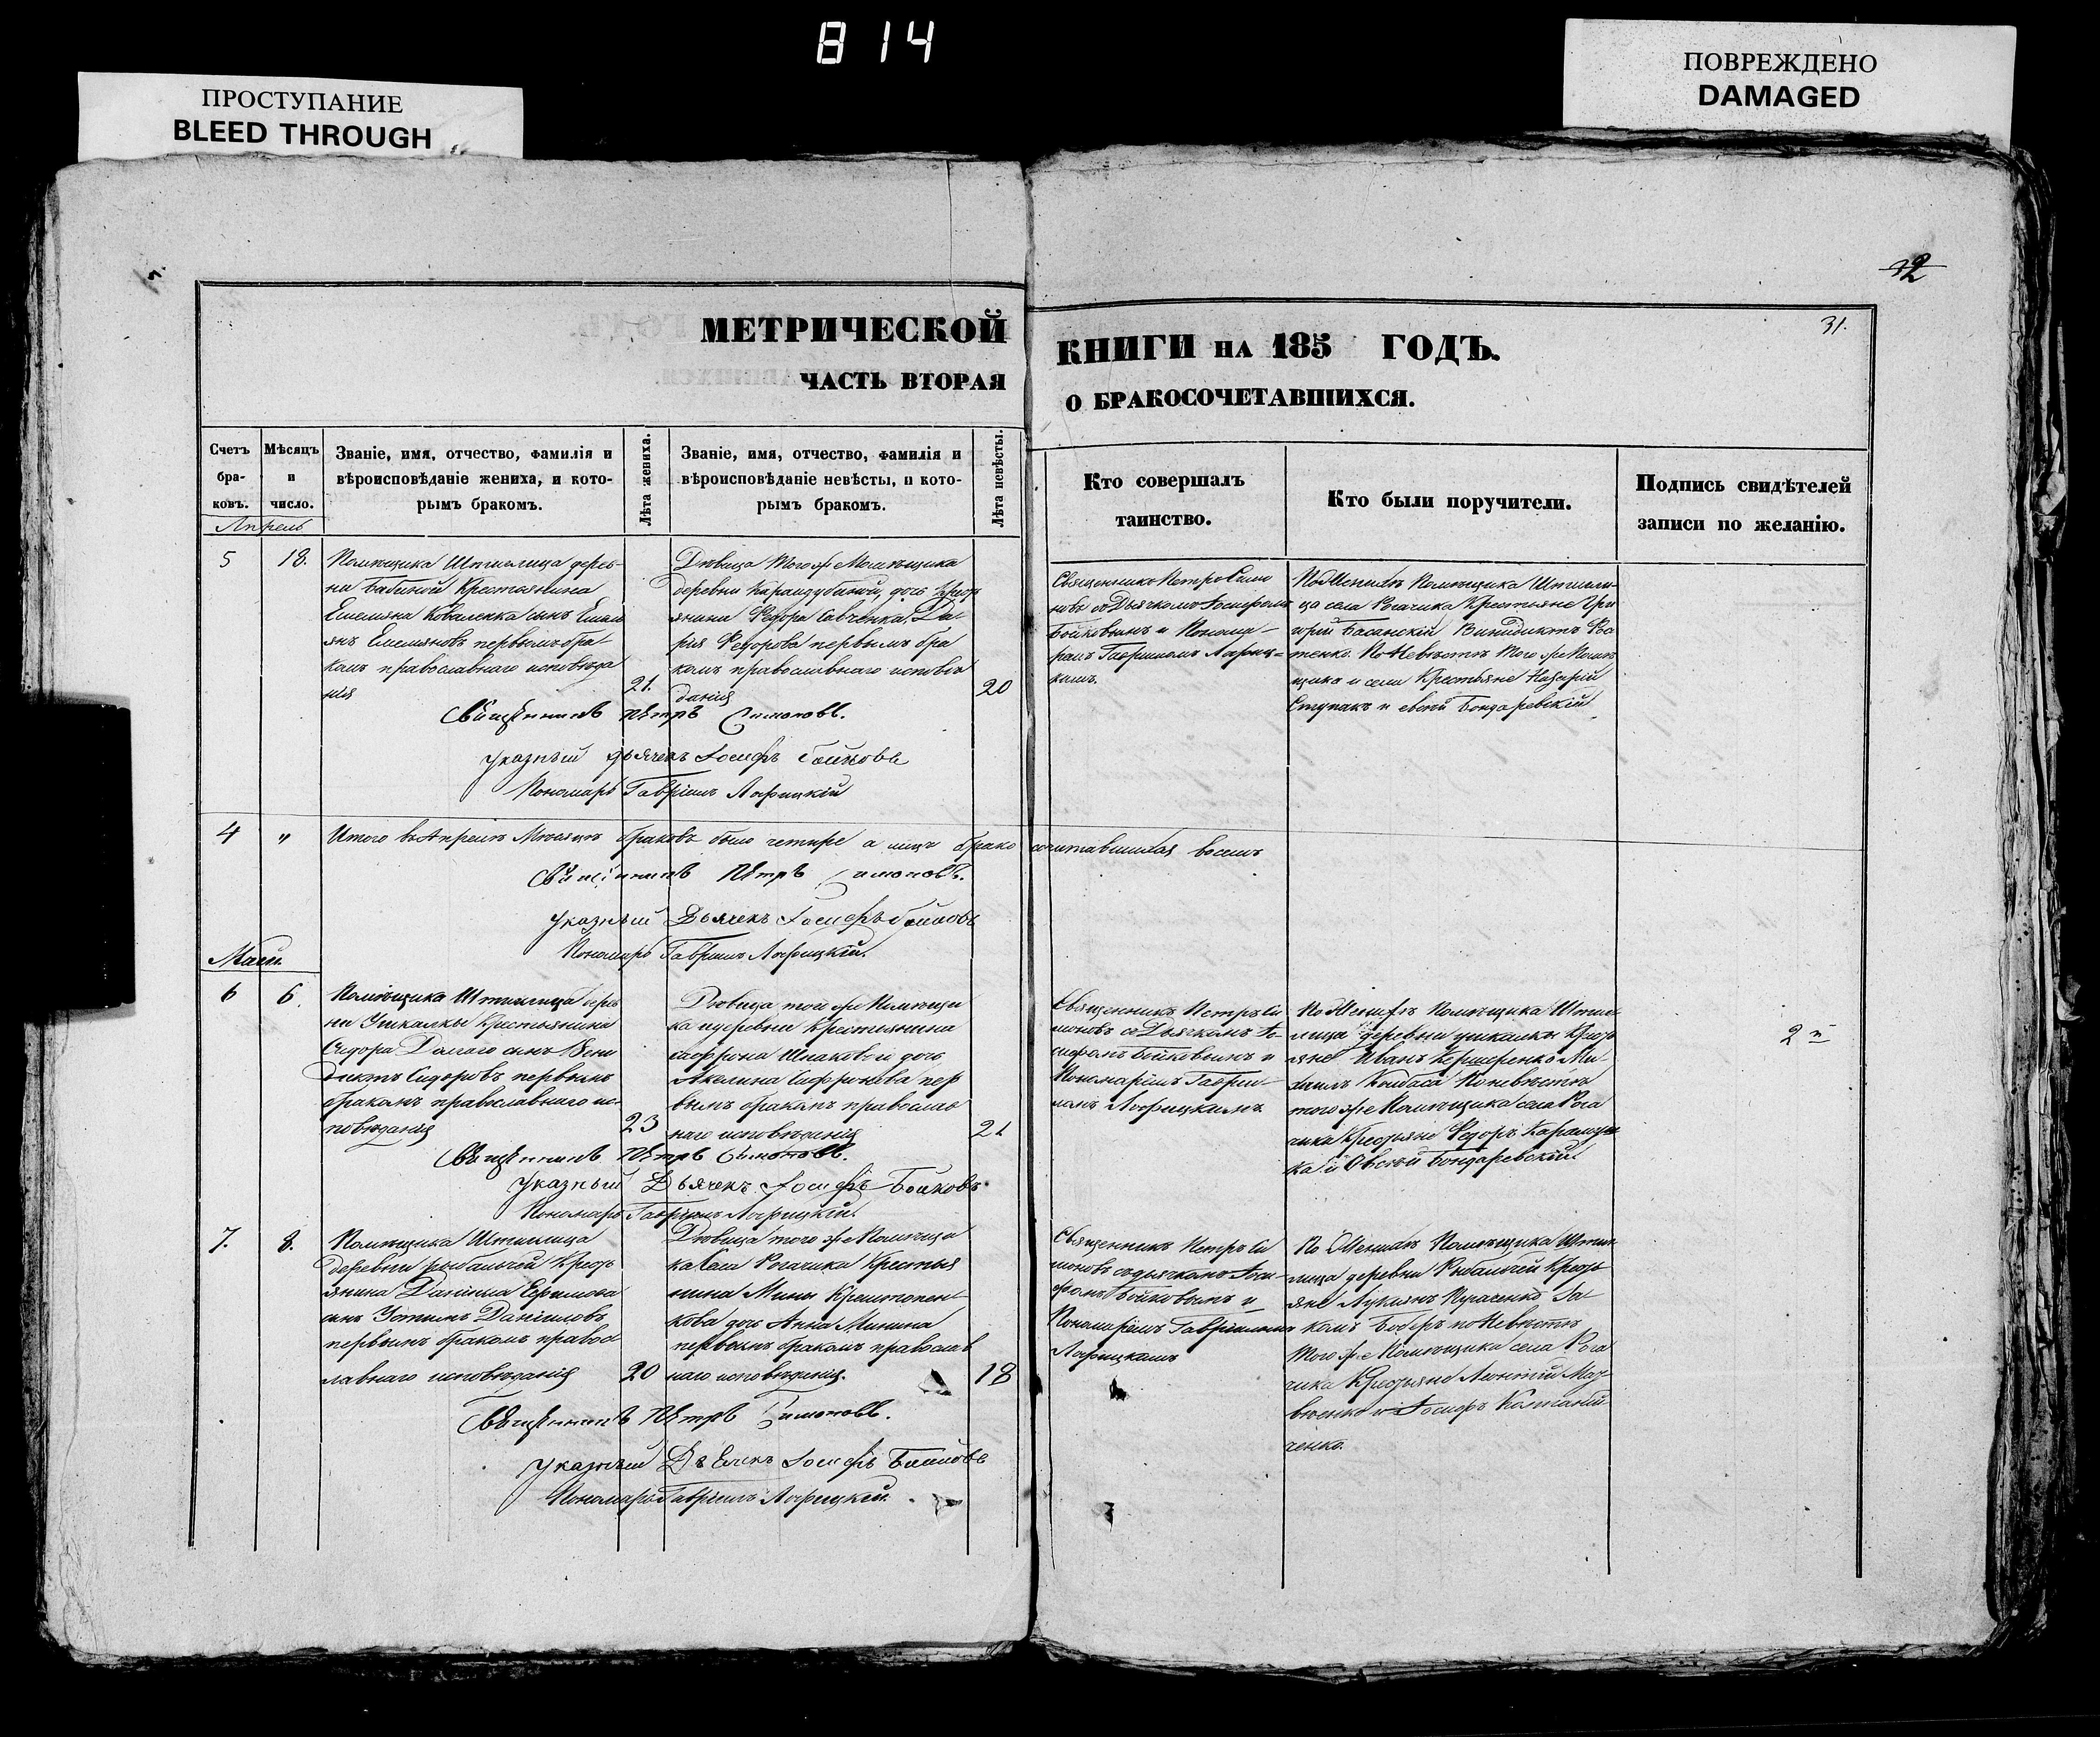 814
ПРОСТУПАНИЕ
BLEED THROUGH
ПОВРЕЖДЕНО
DAMAGED
32
31.
МЕТРИЧЕСКОЙ
ЧАСТЬ ВТОРАЯ
КНИГИ НА 185 ГОДЪ.
О БРАКОСОЧЕТАВШИХСЯ.
Счетъ бра- ковъ.
Мѣсяцъ и число.
Званіе, имя, отчество, фамилія и
вѣроисповѣданіе жениха, и кото-
рымъ бракомъ.
Лѣта жениха.
Званіе, имя, отчество, фамилія и
вѣроисповѣданіе невѣсты, и кото-
рымъ бракомъ.
Лѣта невѣсты.
Кто совершалъ
таинство.
Кто были поручители.
Подпись свидѣтелей
записи по желанію.
Апрель
5
18.
Помѣщика Штиглица дерев-
ни Бабиной Крестьянина
Емельяна Коваленка сынъ Емел
янъ Емельяновъ первымъ бра
комъ православнаго исповѣда
нія
21.
Дѣвица того же Помѣщика
деревни
янина Федора Савченка, Да-
рія Федорова первымъ бра
комъ православнаго исповѣ
данія
20
Священникъ Петръ Симо
новъ съ Дьячкомъ Іосифомъ
Бойковымъ и Понома-
ремъ Гавріиломъ
По Женихѣ Помѣщика Штигли-
ца села Рогачика Крестьяне Гри
горій Басанскій
тенко. По Невѣстѣ того же Помѣ
щика и села Крестьяне Назарій
Ступакъ и Бондаревскій
Священникъ Петръ Симоновъ.
указный дьячекъ Іосифъ Бойковъ
Пономарь Гавріилъ
4
"
Итого въ Апрелѣ Мѣсяцѣ браковъ было четыре а лицъ брако сочитавшихся восемь
Священникъ Петръ Симоновъ.
указный Дьячекъ Іосифъ Бойковъ
Пономарь Гавріилъ
Май.
6
6.
Помѣщика Штиглица дерев
ни Ушкалки Крестьянина
Сидора Долгаго сынъ Вени
диктъ Сидоровъ первымъ
бракомъ православнаго ис-
повѣданія
23
Дѣвица того же Помѣщи
ка и деревни Крестьянина
Софрона дочь
Акелина Софронова пер
вымъ бракомъ православ
наго исповѣданія
21
Священникъ Петръ Си
моновъ съ Дьячкомъ Іо-
сифомъ Бойковымъ и
Пономаремъ Гаврии-
ломъ
По Женихѣ Помѣщика Штиг
лица деревни Ушкалки Крест
яне Иванъ Ми
хаилъ Колбаса По невѣстѣ
того же Помѣщика села Рога
чика Крестьяне Федоръ
ка и Бондаревскій
2
Священникъ Петръ Симоновъ.
указный Дьячекъ Іосифъ Бойковъ.
Пономарь Гавріилъ
7.
8.
Помѣщика Штиглица
деревни Рыбальчей Крест
янина Даніила Ефимова
сынъ Устимъ Даніиловъ
первымъ бракомъ правос
лавнаго исповѣданія
20
Дѣвица того же Помѣщи
ка села Рогачика Крестья
нина Мины
кова дочь Анна Минина
первымъ бракомъ православ
наго исповѣданія.
18
Священникъ Петръ Си
моновъ съ дьячкомъ Іоси-
фомъ Бойковымъ и
Пономаремъ Гавріиломъ
По Женихѣ Помѣщика Штиг
лица деревни Рыбальчей Крест
яне Лукіянъ
по Невѣстѣ
того же Помѣщика села Рога
чика Крестьяне Леонтій
и Іосифъ
ченко.
Священникъ Петръ Симоновъ.
указный Іосифъ Бойковъ
Пономарь Гавріилъ